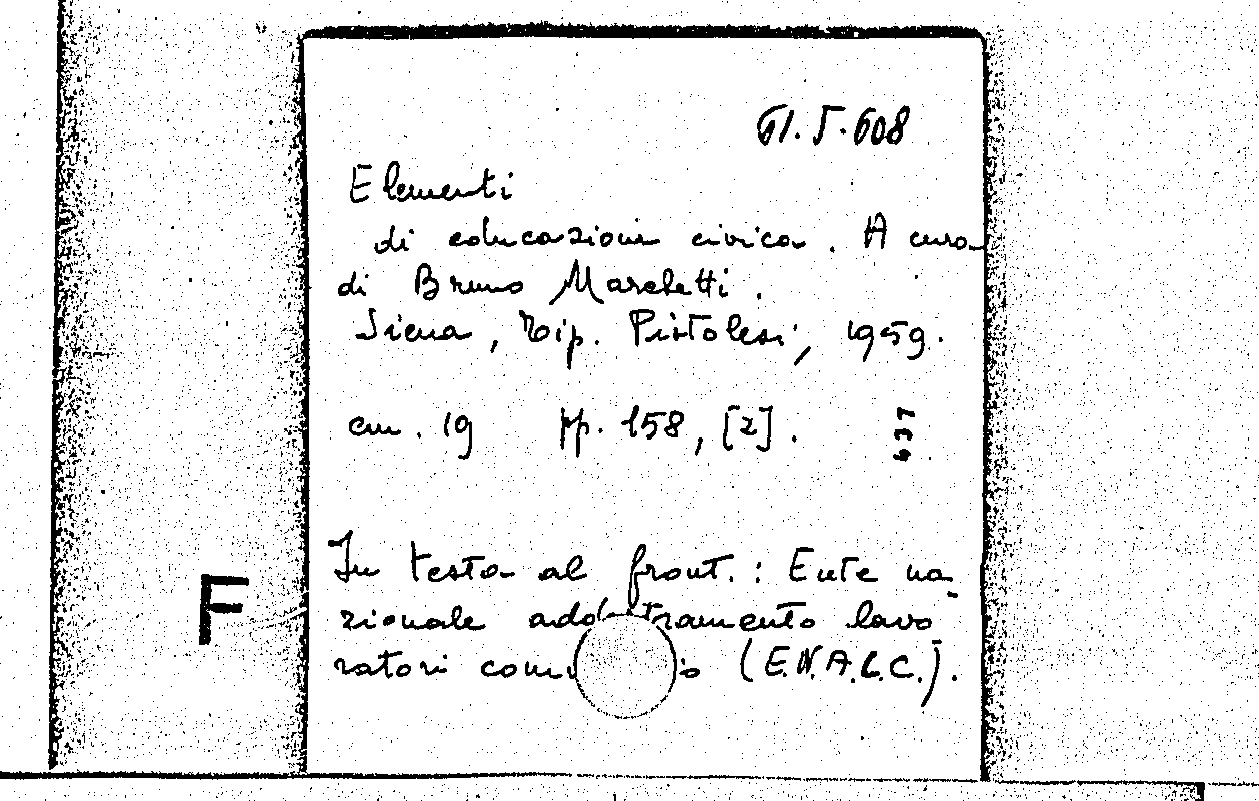 61.5.608
Elementi
di educazione civica. A cura
di Bruno Marchetti.
Siena, Tip. Pistolesi, 1959.
cm. 19 pp. 158, [2].
637
In testa al front.: Ente na-
zionale addestramento lavo-
ratori (E.N.A.L.C.).
F